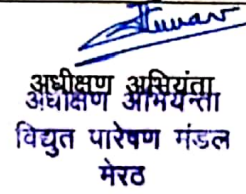 Kumar
अधीक्षण अभियंता
अधीक्षण अभियन्ता
विद्युत पारेषण मंडल
मेरठ